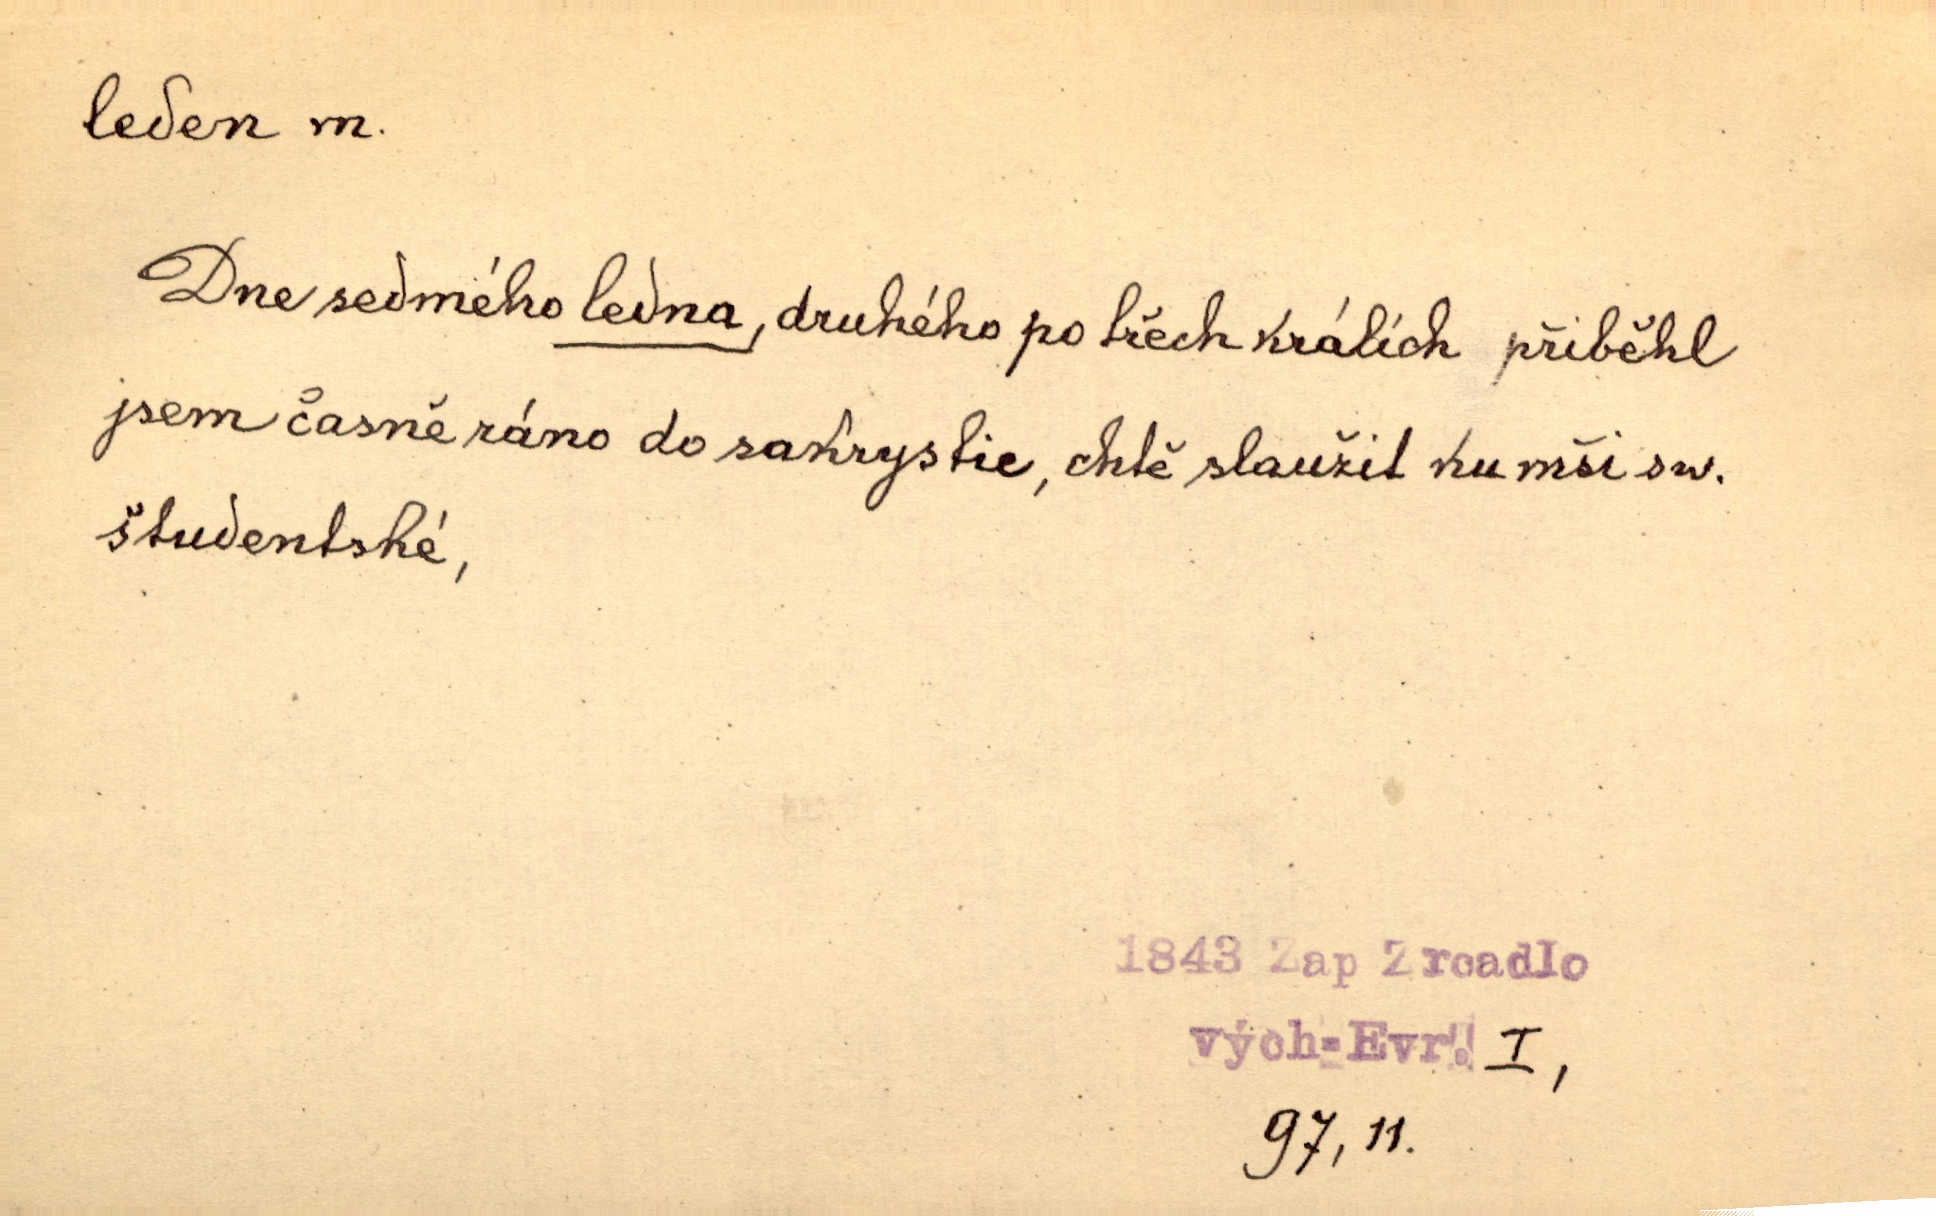 leden m.
Dne sedmého ledna, druhého po třech králích přiběhl
jsem časně ráno do sakrystie, chtě slaužit ku mši sw.
študentské,
1843 Zap Zrcadlo
vých-Evr. I,
97, 11.